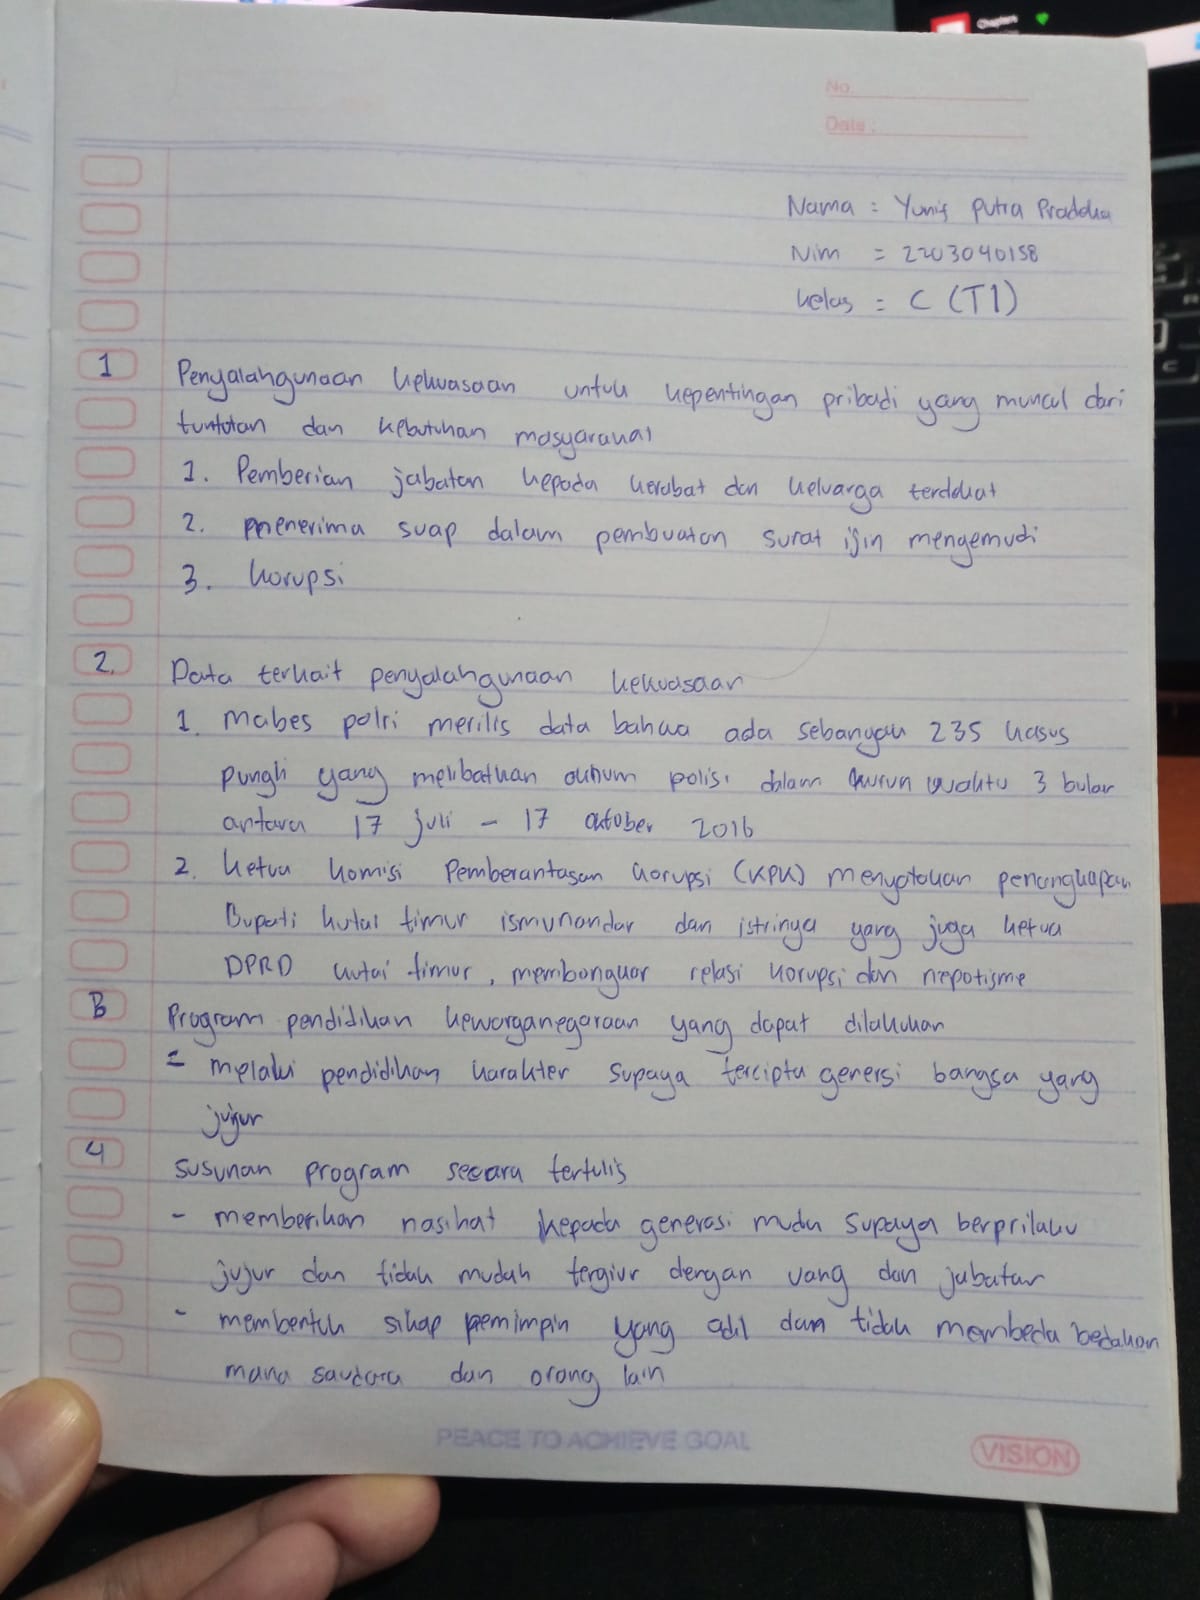 Chapters
No
Date :
Nama : Yunif Putra Praddha
Nim = 2203040158
kelas = C (T1)
1 Penyalahgunaan kekuasaan untuk kepentingan pribadi yang muncul dari
tuntutan dan kebutuhan masyarakat
1. Pemberian jabatan kepada kerabat dan keluarga terdekat
2. menerima suap dalam pembuatan surat ijin mengemudi
3. korupsi
2. Data terkait penyalahgunaan kekuasaan
1. Mabes polri merilis data bahwa ada sebanyak 235 kasus
pungli yang melibatkan oknum polisi dalam kurun waktu 3 bulan
antara 17 juli - 17 oktober 2016
2. ketua komisi Pemberantasan korupsi (KPK) menyatakan penangkapan
Bupati kutai timur ismunandar dan istrinya yang juga ketua
DPRD kutai timur, membongkar relasi korupsi dan nepotisme
B Program pendidikan kewarganegaraan yang dapat dilakukan
= melalui pendidikan karakter supaya tercipta genersi bangsa yang
jujur
4 susunan program secara tertulis
- memberikan nasihat kepada generasi muda supaya berprilaku
jujur dan tidak mudah tergiur dengan uang dan jabatan
- membentuk sikap pemimpin yang adil dan tidak membeda bedakan
mana saudara dan orang lain
PEACE TO ACHIEVE GOAL
VISION